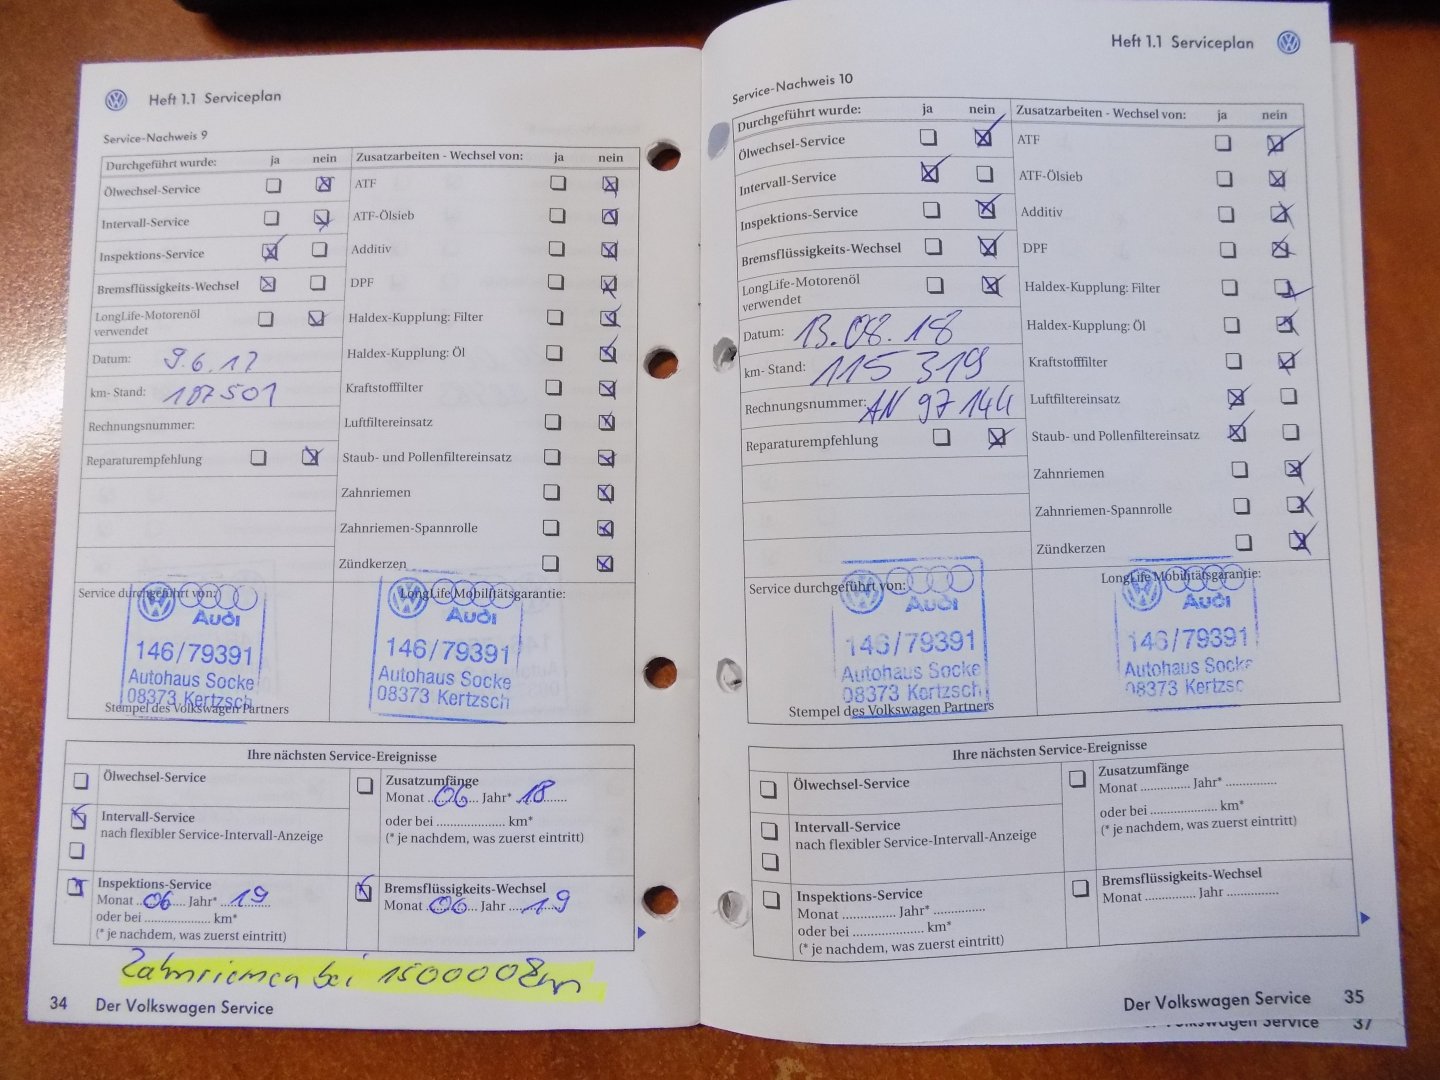 Heft 1.1 Serviceplan
Service-Nachweis 9
Durchgeführt wurde: ja nein Zusatzarbeiten - Wechsel von: ja nein
Ölwechsel-Service ATF
Intervall-Service ATF-Ölsieb
Inspektions-Service Additiv
Bremsflüssigkeits-Wechsel DPF
LongLife-Motorenöl Haldex-Kupplung: Filter
verwendet
Datum: 9.6.17 Haldex-Kupplung: Öl
km- Stand: 107501 Kraftstofffilter
Rechnungsnummer: Luftfiltereinsatz
Reparaturempfehlung Staub- und Pollenfiltereinsatz
Zahnriemen
Zahnriemen-Spannrolle
Zündkerzen
Service durchgeführt von: LongLife Mobilitätsgarantie:
Audi Audi
146/79391 146/79391
Autohaus Socke Autohaus Socke
08373 Kertzsch 08373 Kertzsch
Stempel des Volkswagen Partners
Ihre nächsten Service-Ereignisse
Ölwechsel-Service Zusatzumfänge
Monat 06 Jahr* 18
Intervall-Service oder bei .................... km*
nach flexibler Service-Intervall-Anzeige (* je nachdem, was zuerst eintritt)
Inspektions-Service Bremsflüssigkeits-Wechsel
Monat 06 Jahr* 19 Monat 06 Jahr 19
oder bei .................... km*
(* je nachdem, was zuerst eintritt)
Zahnriemen bei 150000 km
34 Der Volkswagen Service
Heft 1.1 Serviceplan
Service-Nachweis 10
Durchgeführt wurde: ja nein Zusatzarbeiten - Wechsel von: ja nein
Ölwechsel-Service ATF
Intervall-Service ATF-Ölsieb
Inspektions-Service Additiv
Bremsflüssigkeits-Wechsel DPF
LongLife-Motorenöl Haldex-Kupplung: Filter
verwendet
Datum: 13.08.18 Haldex-Kupplung: Öl
km- Stand: 115 319 Kraftstofffilter
Rechnungsnummer: AN 97144 Luftfiltereinsatz
Reparaturempfehlung Staub- und Pollenfiltereinsatz
Zahnriemen
Zahnriemen-Spannrolle
Zündkerzen
Service durchgeführt von: LongLife Mobilitätsgarantie:
Audi Audi
146/79391 146/79391
Autohaus Socke Autohaus Socke
08373 Kertzsch 08373 Kertzsc
Stempel des Volkswagen Partners
Ihre nächsten Service-Ereignisse
Ölwechsel-Service Zusatzumfänge
Monat .............. Jahr* ..............
Intervall-Service oder bei .................... km*
nach flexibler Service-Intervall-Anzeige (* je nachdem, was zuerst eintritt)
Inspektions-Service Bremsflüssigkeits-Wechsel
Monat .............. Jahr* .............. Monat .............. Jahr ..............
oder bei .................... km*
(* je nachdem, was zuerst eintritt)
Der Volkswagen Service 35
Volkswagen Service 37